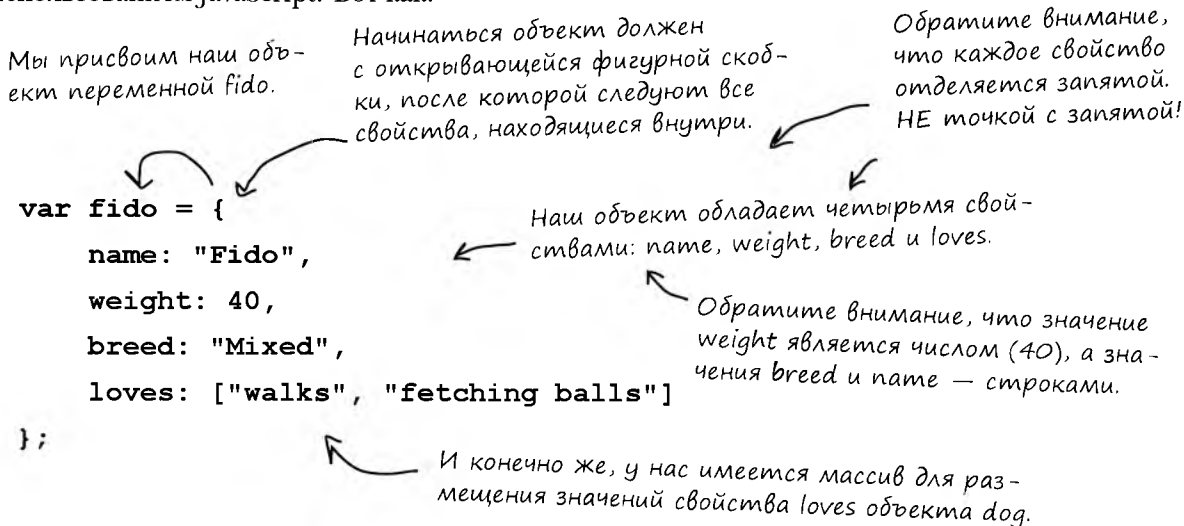 JavaScript. Вот как:
Мы присвоим наш объ-
ект переменной fido.
Начинаться объект должен
с открывающейся фигурной скоб-
ки, после которой следуют все
свойства, находящиеся внутри.
Обратите внимание,
что каждое свойство
отделяется запятой.
НЕ точкой с запятой!
var fido = {
name: "Fido",
weight: 40,
breed: "Mixed",
loves: ["walks", "fetching balls"]
};
Наш объект обладает четырьмя свой-
ствами: name, weight, breed и loves.
Обратите внимание, что значение
weight является числом (40), а зна-
чения breed и name — строками.
И конечно же, у нас имеется массив для раз-
мещения значений свойства loves объекта dog.